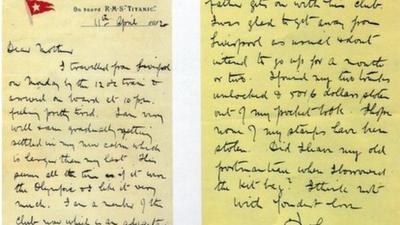 On board R.M.S "TITANIC".
11th April 1912
Dear Mother
I travelled from Liverpool
on Monday by the 12 o'c train &
arrived on board at 10 pm.
feeling pretty tired. I am very
well & am gradually getting
settled in my new cabin which
is larger than my last. This
seems all the time as if it were
the Olympic & I like it very
much. I am a member of the
Club now which is an advantage
father gets on with his club.
I was glad to get away from
Liverpool as usual & don't
intend to go up for a month
or two. I found my two trunks
unlocked & 5 or 6 dollars stolen
out of my pocket book. I hope
none of my stamps have been
stolen. Did I leave my old
portmanteau when I borrowed
the kit bag? I think not
With fondest love